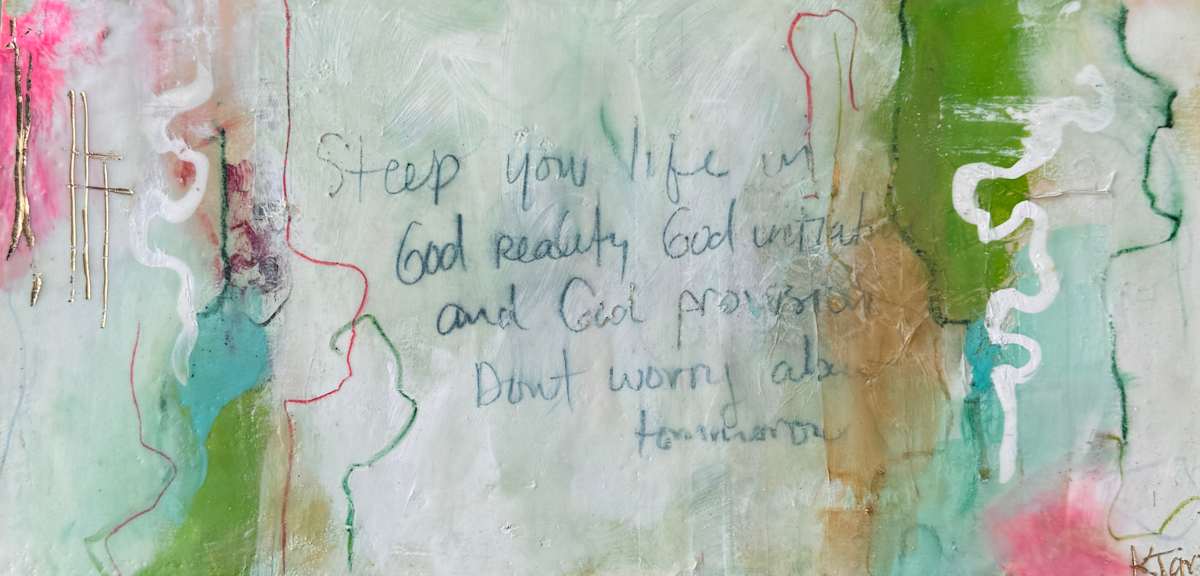 Steep your life in
God reality God initiat
and God provision
Dont worry abou
tommorow
KTar